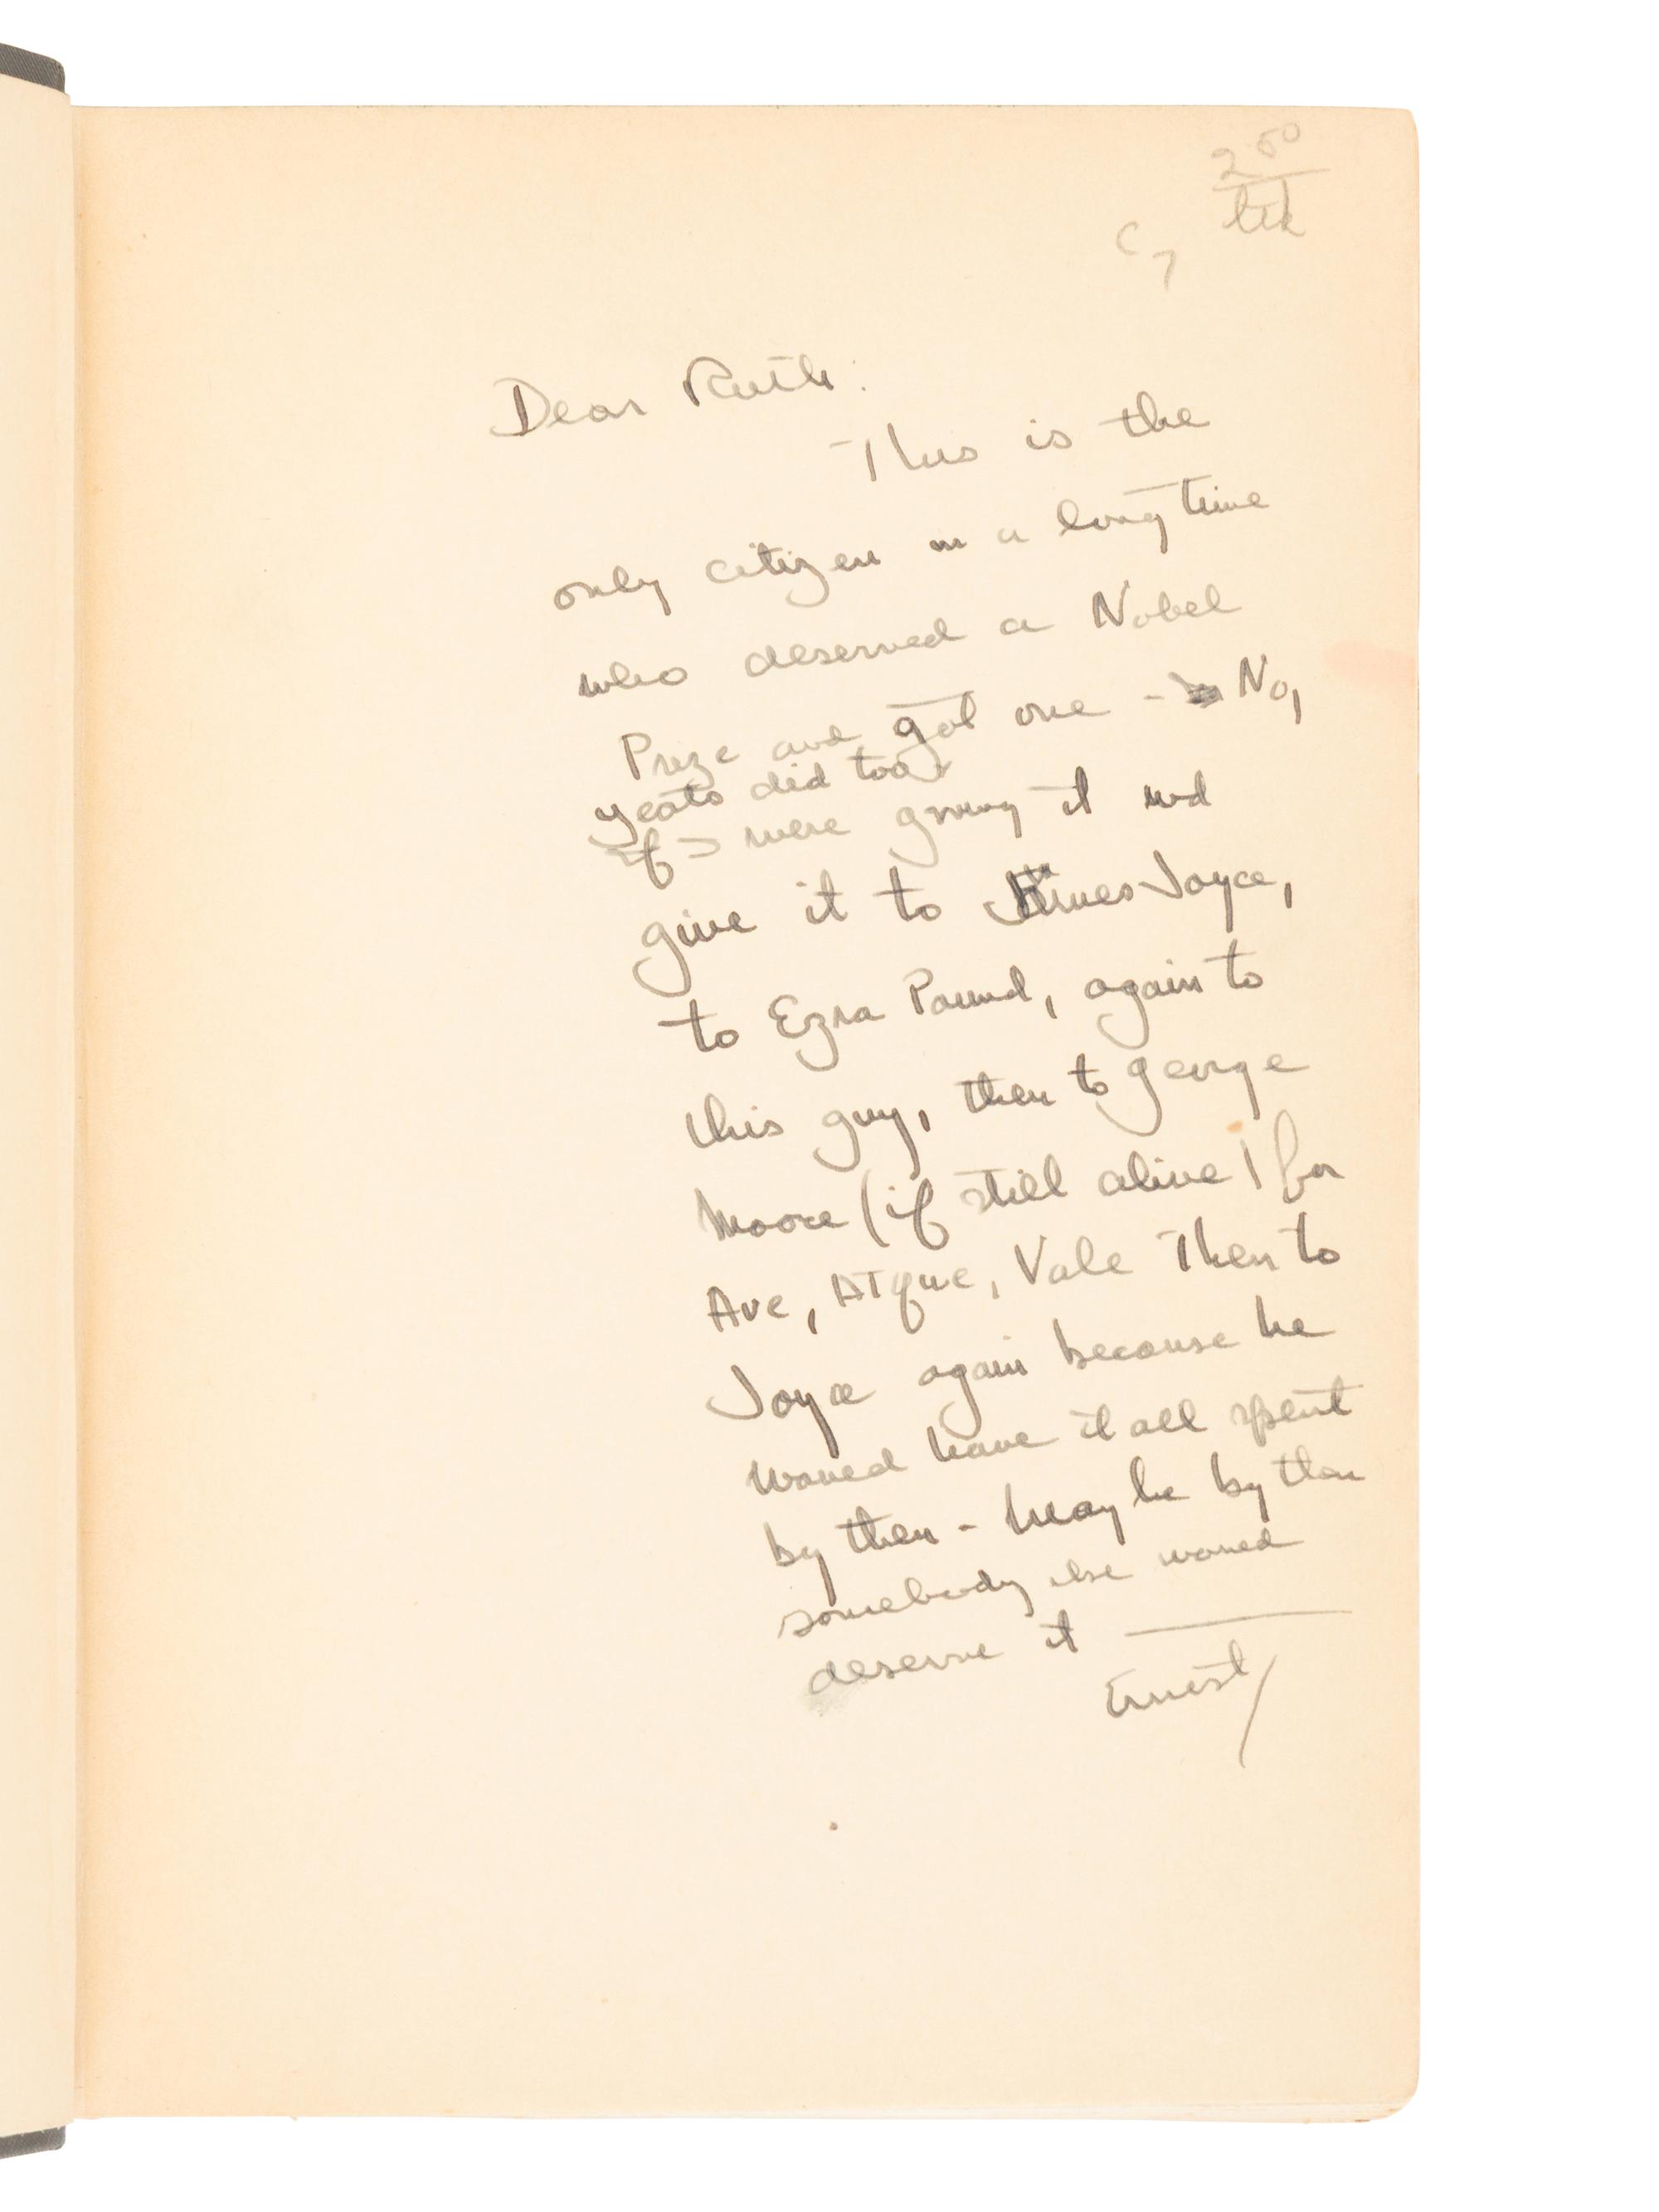 2 50
Dear Ruth:
This is the
only citizen in a long time
who deserved a Nobel
Prize and got one - No,
Yeats did too
if I were giving it wd
give it to James Joyce,
to Ezra Pound, again to
this guy, then to George
Moore (if still alive) for
Ave, Atque, Vale Then to
Joyce again because he
would have it all spent
by then - Maybe by then
somebody else would
deserve it —
Ernest/